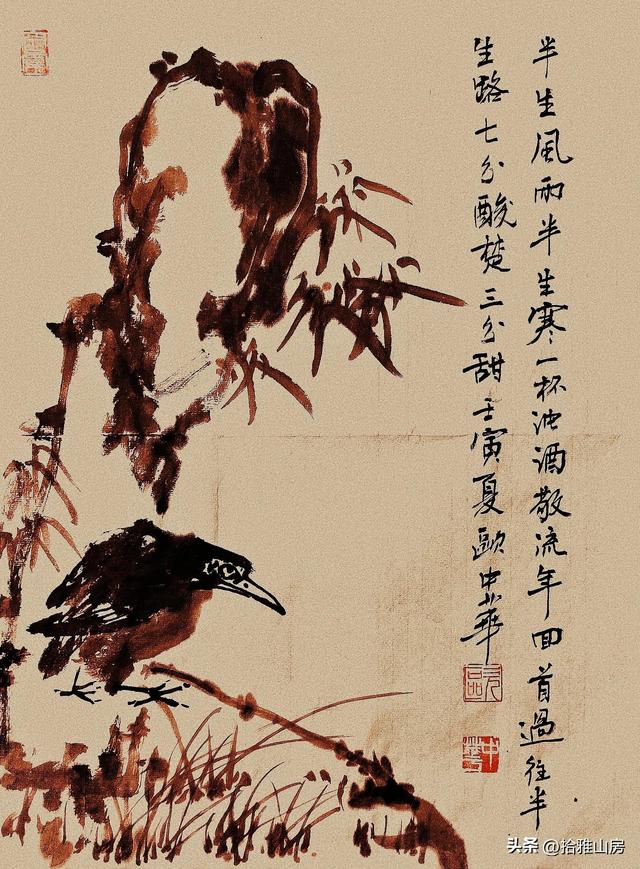 半生風雨半生寒一杯浊酒敬流年回首過往半
生路七分酸楚三分甜壬寅夏歐中華
中華
头条 @拾雅山房